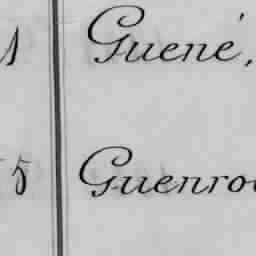 1 Guené,
5 Guenro